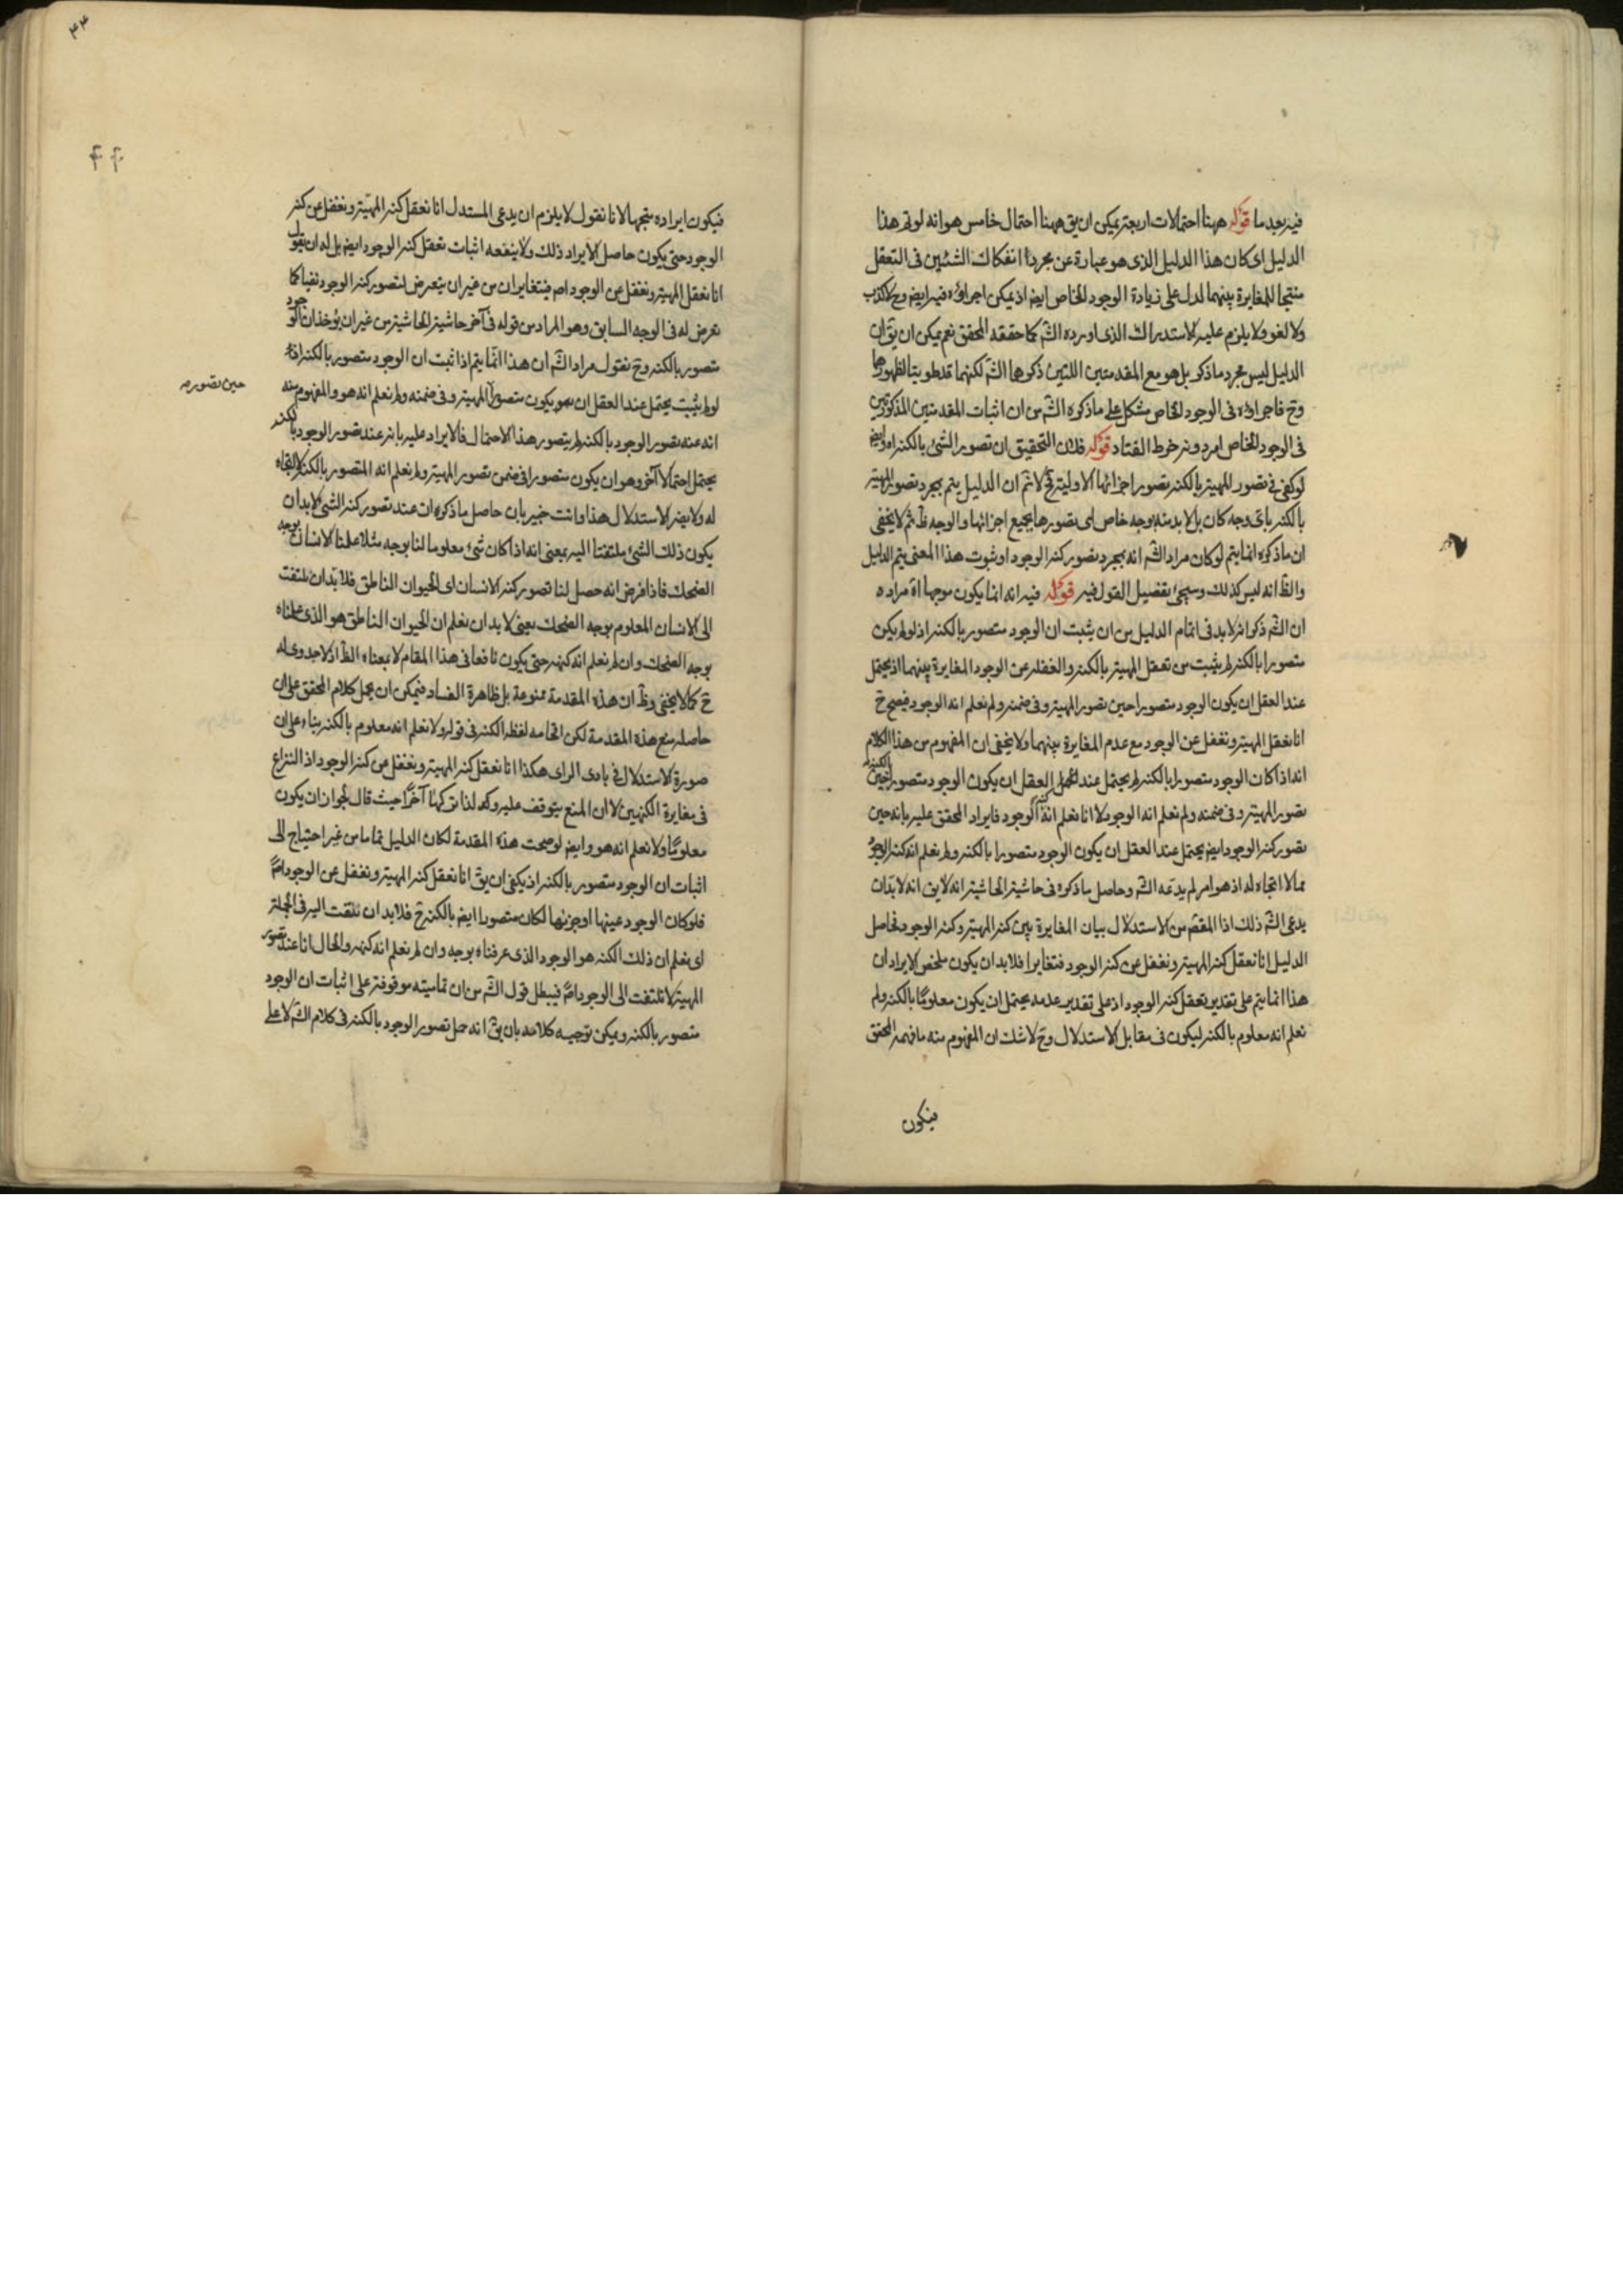 فيه بعد ما قوله ههنا احتمالات اربعة يمكن ان يق ههنا احتمال خامس هو انه لو تم هذا
الدليل اى كان هذا الدليل الذى هو عبارة عن مجرد انفكاك الشيئين فى التعقل
منتجا للمغايرة بينهما لدل على زيادة الوجود الخاص ايض اذ يمكن اجراؤه فيه ايض وح لا كذب
ولا لغو ولا يلزم عليه الاستدراك الذى اورده الش كما حققه المحقق نعم يمكن ان يق ان
الدليل ليس مجرد ما ذكر بل هو مع المقدمتين اللتين ذكرها الش لكنهما قد طويتا لظهورها
وح فاجراؤه فى الوجود الخاص مشكل على ما ذكره الش من ان اثبات المقدمتين المذكورتين
فى الوجود الخاص امر دونه خرط القتاد قوله فلان التحقيق ان تصور الشئ بالكنه اه وايض
لو كفى فى تصور المهية بالكنه تصور اجزائها الاولية فح لا ثم ان الدليل يتم بمجرد تصور المهية
بالكنه باى وجه كان بل لا بد منه بوجه خاص اى تصورها بجميع اجزائها والوجه ظ ثم لا يخفى
ان ما ذكره انما يتم لو كان مراد الش انه بمجرد تصور كنه الوجود او ثبوت هذا المعنى يتم الدليل
والظ انه ليس كذلك وسيجئ تفصيل القول فيه قوله فيه انه انما يكون موجها اه مراده
ان الش ذكر انه لا بد فى اتمام الدليل من ان يثبت ان الوجود متصور بالكنه اذ لو لم يكن
متصورا بالكنه لم يثبت من تعقل المهية بالكنه والغفلة عن الوجود المغايرة بينهما اذ يحتمل
عند العقل ان يكون الوجود متصورا حين تصور المهية وفى ضمنه ولم نعلم انه الوجود فيصح ح
انا نعقل المهية ونغفل عن الوجود مع عدم المغايرة بينهما ولا يخفى ان المفهوم من هذا الكلام
انه اذا كان الوجود متصورا بالكنه لم يحتمل عند العقل ان يكون الوجود متصورا بالكنه حين
تصور المهية وفى ضمنه ولم نعلم انه الوجود لا انا نعلم انه الوجود فايراد المحقق عليه بانه حين
تصور كنه الوجود ايض يحتمل عند العقل ان يكون الوجود متصورا بالكنه ولم نعلم انه كنه الوجود
مما لا اتجاه له اذ هو امر لم يدعه الش وحاصل ما ذكره فى حاشية الحاشية انه لا يق انه لا بد ان
يدعى الش ذلك اذ المقصم من الاستدلال بيان المغايرة بين كنه المهية وكنه الوجود فحاصل
الدليل انا نعقل كنه المهية ونغفل عن كنه الوجود فتغايرا فلا بد ان يكون ملخص الايراد ان
هذا انما يتم على تقدير تعقل كنه الوجود اذ على تقدير عدمه يحتمل ان يكون معلوما بالكنه ولم
نعلم انه معلوم بالكنه ليكون فى مقابل الاستدلال وح لا شك ان المفهوم منه ما فهمه المحقق
فيكون
٤٤
۴۴
فيكون ايراده متجها لانا نقول لا يلزم ان يدعى المستدل انا نعقل كنه المهية ونغفل عن كنه
الوجود حتى يكون حاصل الايراد ذلك ولا ينفعه اثبات تعقل كنه الوجود ايض بل له ان يقول
انا نعقل المهية ونغفل عن الوجود اصم فيتغايران من غير ان يتعرض لتصور كنه الوجود نفيا كما
تعرض له فى الوجه السابق وهو المراد من قوله فى آخر حاشية الحاشية من غير ان يؤخذ ان الوجود
متصور بالكنه وح نقول مراد الش ان هذا انما يتم اذا ثبت ان الوجود متصور بالكنه اذ
لو لم يثبت يحتمل عند العقل ان يكون متصورا المهية وفى ضمنه ولم نعلم انه هو والمفهوم منه
حين تصور صح
انه عند تصور الوجود بالكنه لم يتصور هذا الاحتمال فالايراد عليه بانه عند تصور الوجود بالكنه
يحتمل احتمالا آخر وهو ان يكون متصورا فى ضمن تصور المهية ولم نعلم انه المتصور بالكنه لا اتجاه
له ولا يضر الاستدلال هذا وانت خبير بان حاصل ما ذكره ان عند تصور كنه الشئ لا بد ان
يكون ذلك الشئ ملتفتا اليه بمعنى انه اذا كان شئ معلوما لنا بوجه مثلا علمنا الانسان بوجه
الضحك فاذا فرض انه حصل لنا تصور كنه الانسان اى الحيوان الناطق فلا بد ان نلتفت
الى الانسان المعلوم بوجه الضحك يعنى لا بد ان نعلم ان الحيوان الناطق هو الذى علمناه
بوجه الضحك وان لم نعلم انه كنهه حتى يكون نافعا فى هذا المقام لا بمعناه الظ اذ لا جدوى له
ح كما لا يخفى وظ ان هذه المقدمة ممنوعة بل ظاهرة الفساد فيمكن ان يحمل كلام المحقق على ان
حاصله منع هذه المقدمة لكن اقحامه لفظ الكنه فى قوله ولا نعلم انه معلوم بالكنه بناء على ان
صورة الاستدلال فى بادى الراى هكذا انا نعقل كنه المهية ونغفل عن كنه الوجود اذ النزاع
فى مغايرة الكنهين لا ان المنع يتوقف عليه وكم لذا ترك هنا آخرا حيث قال لجواز ان يكون
معلوما ولا نعلم انه هو وايض لو صحت هذه المقدمة لكان الدليل تماما من غير احتياج الى
اثبات ان الوجود متصور بالكنه اذ يكفى ان يق انا نعقل كنه المهية ونغفل عن الوجود اصم
فلو كان الوجود عينها او جزئها لكان متصورا ايض بالكنه ح فلا بد ان نلتفت اليه فى الجملة
اى نعلم ان ذلك الكنه هو الوجود الذى عرفناه بوجه وان لم نعلم انه كنهه والحال انا عند تصور
المهية لا نلتفت الى الوجود اصم فيبطل قول الش من ان تماميته موقوفة على اثبات ان الوجود
متصور بالكنه ويمكن توجيه كلامه بان يق انه حمل تصور الوجود بالكنه فى كلام الش لا على